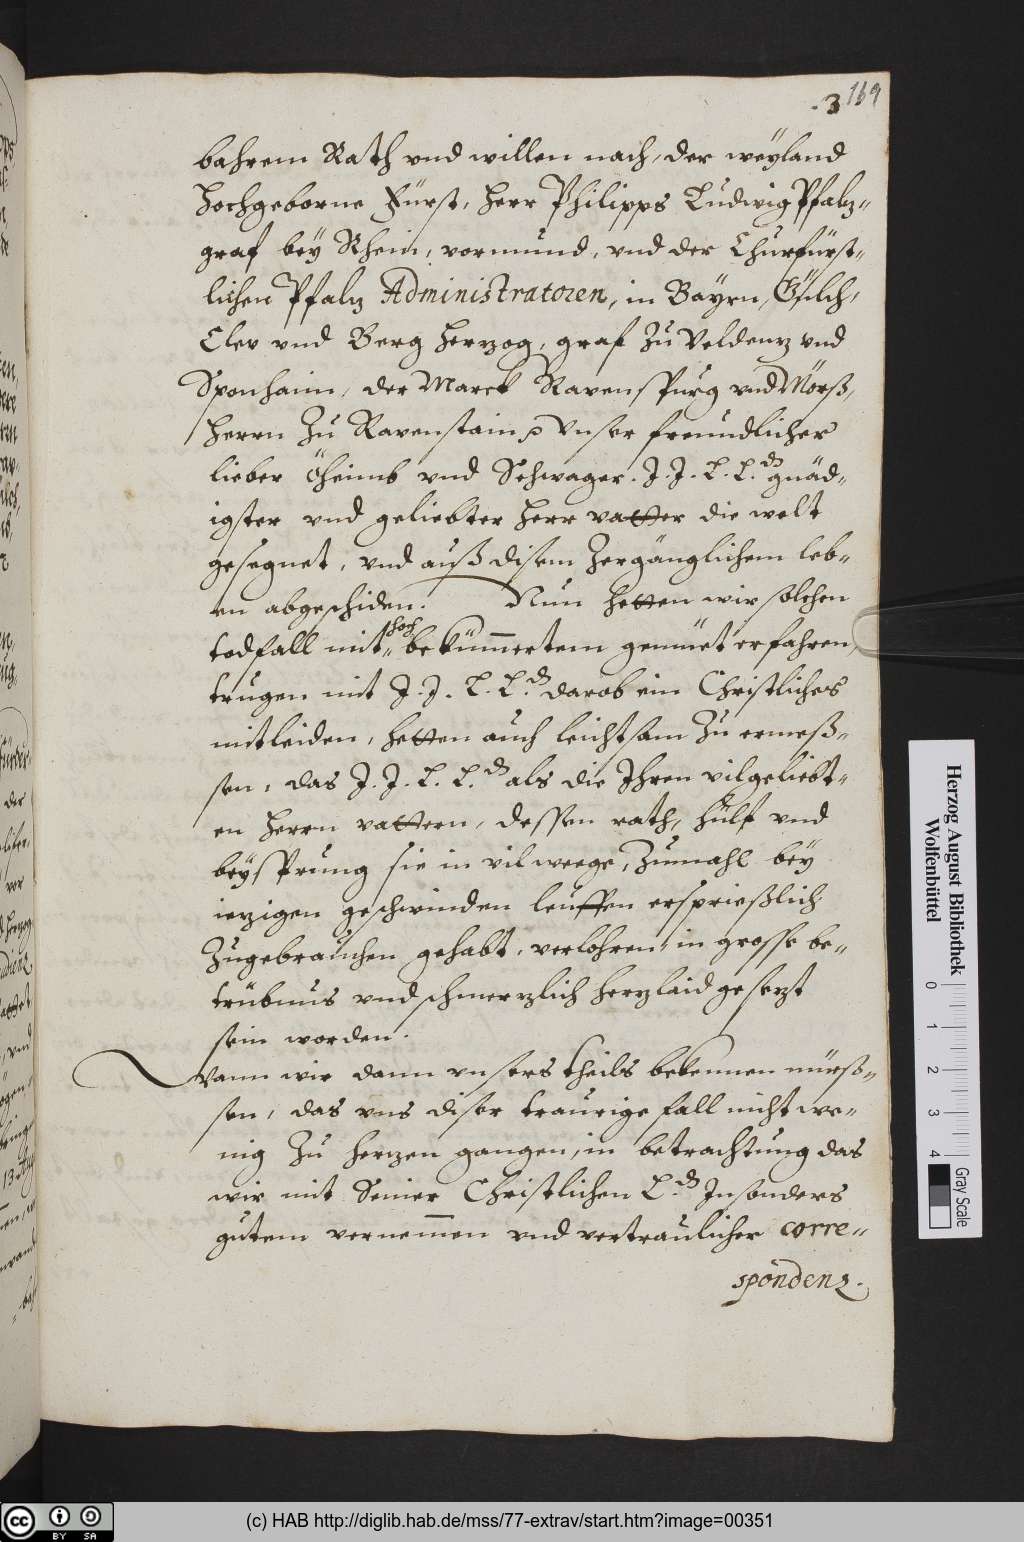 .3 169
bahrem Rath vnd willen nach, der weÿland
Hochgeborne Fürst, Herr Philipps Ludwig Pfalz=
graf beÿ Rhein, vormund, vnd der Churfürst=
lichen Pfalz Administratoren, in Baÿrn, Gülch,
Clev vnd Berg Herzog, graf Zu Veldenz vnd
Sponhaim, der Marck Ravenspurg vnd Mörß,
Herrn Zu Ravenstain, Vnser freundlicher
lieber Öheimb vnd Schwager. J. J. L. L.d gnäd=
igster vnd geliebter Herr vatter die welt
gesegnet, vnd auß disem Zergänglichem leb=
en abgeschiden. Nun hetten wir solchen
todfall mit hoch= bekümmertem gemüet erfahren,
trugen mit J. J. L. L.d darob ein Christliches
mitleiden, hetten auch leichtsam Zu ermeß=
sen, das J. J. L. L.d als die Ihren vilgeliebt=
en Herrn vattern, dessen rath, hülf vnd
beÿsprung sie in vil weege, Zumahl beÿ
iezigen geschwinden leuffen ersprießlich
Zugebrauchen gehabt, verlohren, in grosse be=
trübnus vnd schmerzlich herzlaid gesezt
sein worden.
Wann wir dann vnsers theils bekennen müeß=
sen, das vns diser traurige fall nicht we=
nig Zu herzen gangen, in betrachtung das
wir mit Seiner Christlichen L.d Insonders
gutem vernemmen vnd vertraulicher corre=
spondenz.
Herzog August Bibliothek
Wolfenbüttel
0 1 2 3 4
Gray Scale
(c) HAB http://diglib.hab.de/mss/77-extrav/start.htm?image=00351
cc BY SA